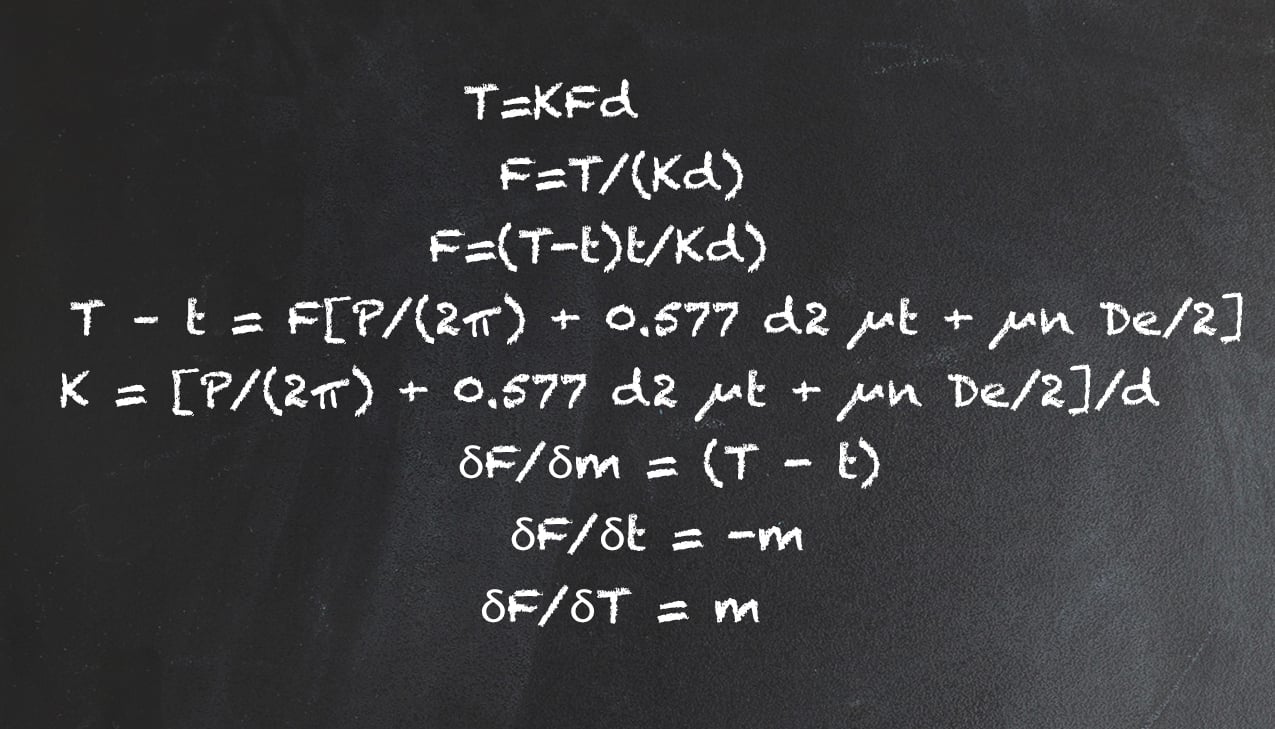 T=KFd
F=T/(Kd)
F=(T-t)t/Kd)
T - t = F[P/(2π) + 0.577 d2 μt + μn De/2]
K = [P/(2π) + 0.577 d2 μt + μn De/2]/d
δF/δm = (T - t)
δF/δt = -m
δF/δT = m